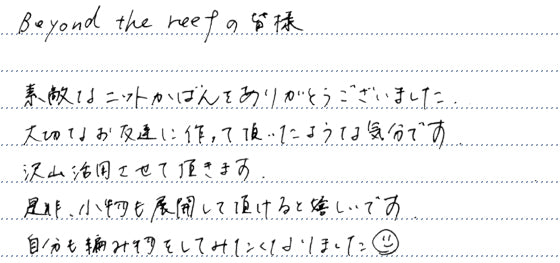 Beyond the reefの皆様
素敵なニットかばんをありがとうございました.
大切なお友達に作って頂いたような気分です
沢山活用させて頂きます.
是非、小物も展開して頂けると嬉しいです
自分も編み物をしてみたくなりました☺